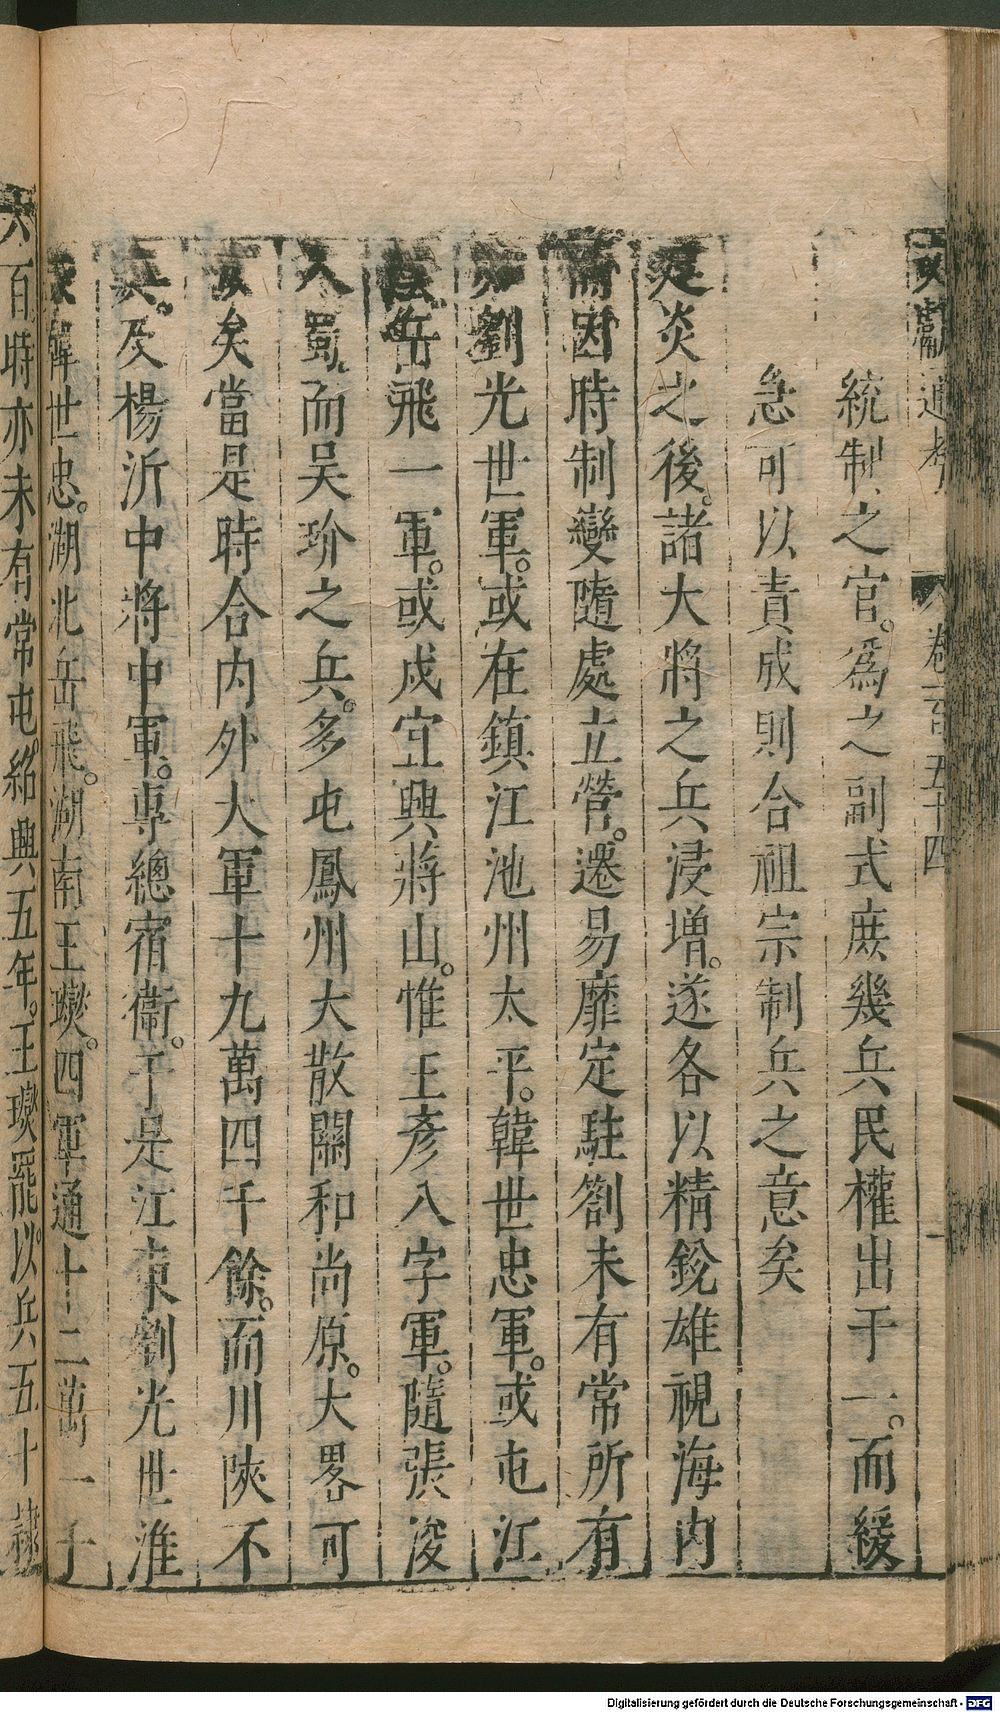 文獻通考 卷一百五十四
統制之官。爲之副式庶幾兵民權出于一。而緩
急可以責成則合祖宗制兵之意矣
建炎之後。諸大將之兵浸增。遂各以精銳雄視海内
而因時制變隨處立營。遷易靡定駐劄未有常所有
如劉光世軍。或在鎮江池州太平。韓世忠軍。或屯江
陰岳飛一軍。或戍宜興蔣山。惟王彥八字軍。隨張浚
入蜀而吴玠之兵。多屯鳳州大散關和尚原。大畧可
攷矣當是時合内外大軍十九萬四千餘。而川陝不
與。及楊沂中將中軍。專總宿衞。于是江東劉光世淮
東韓世忠。湖北岳飛。湖南王𤫉。四軍通十二萬一千
六百時亦未有常屯。紹興五年。王𤫉罷。以兵五十隷
Digitalisierung gefördert durch die Deutsche Forschungsgemeinschaft - DFG